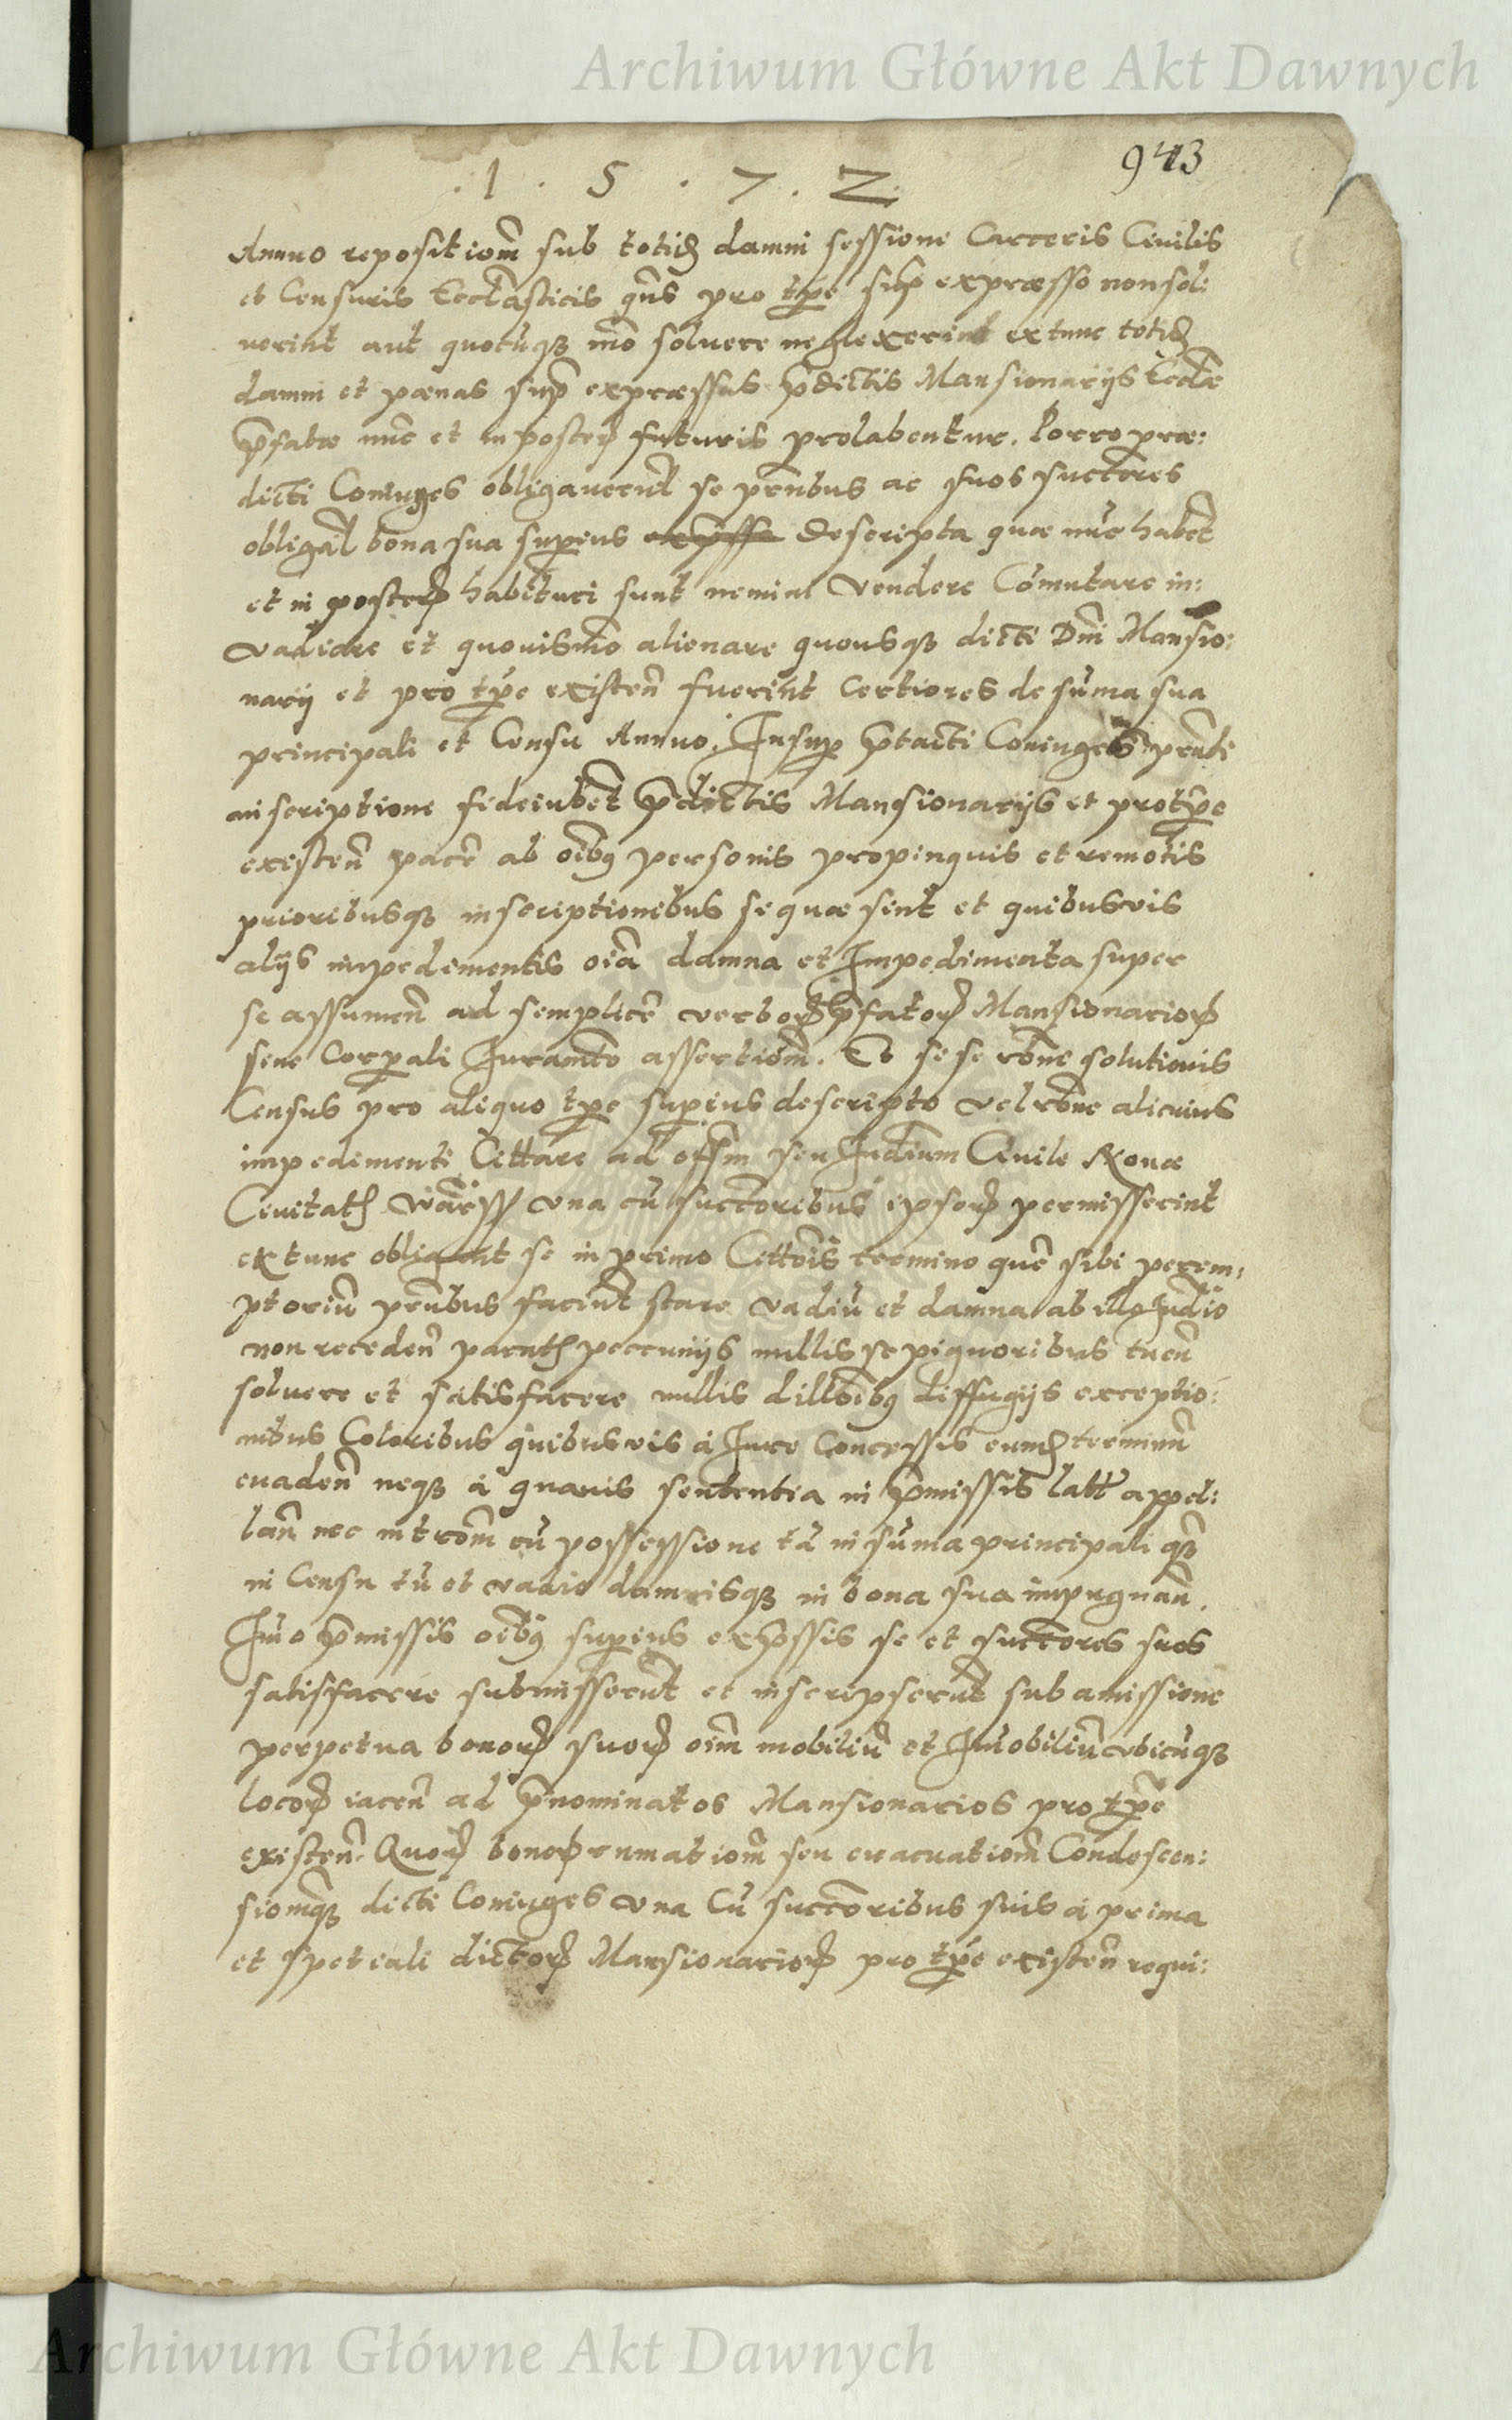 Archiwum Główne Akt Dawnych
943
. 1 . 5 . 7 . 2
Annuo repositiom̃ sub totid damni sessione Carceris Civilis
et Censuris Eccl̃asticis qñs pro tp̃e sup̃ expraesso non sol:
verint aut quotuq₃ mõ solvere neglexerint ex tunc totid
damni et paenas sup̃ expraessas p̃dictis Mansionarijs Eccl̃ae
p̃fatae nũc et in poster̃ futuris prolabentur. Porro prae:
dicti Coniuges obligaverũt se p̃ntibus ac suos succ̃ores
obligãt bona sua superius descripta quae nũc habẽt
et in poster̃ habituri sunt nemini vendere Com̃utare in:
vadiare et quovismõ alienare quousq₃ dicti Dñi Mansio:
narij et pro tp̃e existeñ fuerint certiores de sum̃a sua
principali et Censu Annuo. Insup̃ p̃tacti Coniuges in p̃nti
inscriptione fideiubẽt p̃dictis Mansionarijs et pro tp̃e
existeñ pacẽ ab oĩbq personis propinquis et remotis
prioribusq₃ inscriptionibus si quae sint et quibusvis
alijs impedimentis oĩa damna et Impedimenta super
se assumeñ ad simplicẽ verbor̃ p̃fator̃ Mansionarior̃
sine Corporali Iuramẽto assertiom̃. Et si se rõne solutionis
Census pro aliquo tp̃e superius descripto vel rõne alicuius
impedimenti Cittare ad off̃m seu Iudĩum Civile Novae
Civitatis Warss una cũ succ̃oribus ipsor̃ permisserint
ex tunc obligant se in primo Citt̃ois termino quẽ sibi perem:
ptoriũ p̃ntibus faciũt stare vadiũ et damna ab illo Iudĩo
non recedeñ paratis pecunijs nullis se pignoribus tueñ
solvere et satisfacere nullis dill̃oibq diffugijs exceptio:
nibus Coloribus quibusvis à Iure Concessis eund terminũ
evadeñ neq₃ à quavis sententia in p̃missis latt appel:
lañ nec intrõm cũ possessione tã in sum̃a principali q̃₃
in Censu tũ et vadio damnisq₃ in bona sua impugnañ.
Imo p̃missis oĩbq superius exp̃ssis se et succ̃ores suos
satisfacere submisserũt et inscripserũt sub amissione
perpetua bonor̃ suor̃ oĩm mobiliũ et Im̃obiliũ ubicũq₃
locor̃ iaceñ ad p̃nominatos Mansionarios pro tp̃e
existeñ. Quor̃ bonor̃ rumatiom̃ seu evacuatiom̃ Condescen:
siom̃q₃ dicti Coniuges una Cũ succ̃oribus suis à prima
et speciali dictor̃ Mansionarior̃ pro tp̃e existeñ requi:
Archiwum Główne Akt Dawnych